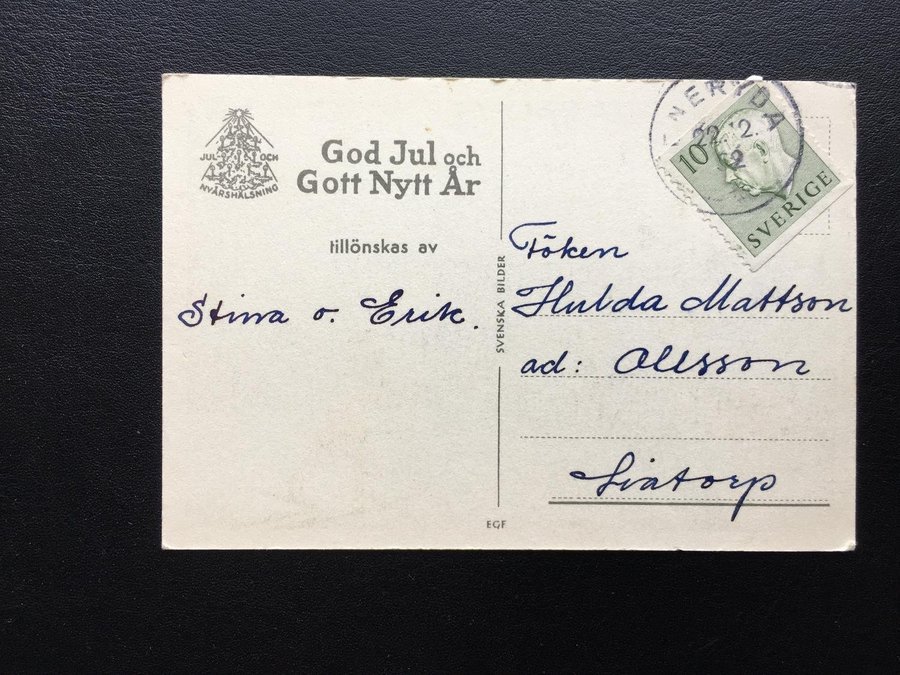 JUL OCH
NYÅRSHÄLSNING
God Jul och
Gott Nytt År
tillönskas av
Stina o. Erik.
SVENSKA BILDER
EGF
NERYDA
22.12.
10
SVERIGE
Föken
Hulda Mattson
ad: Olsson
Liatorp